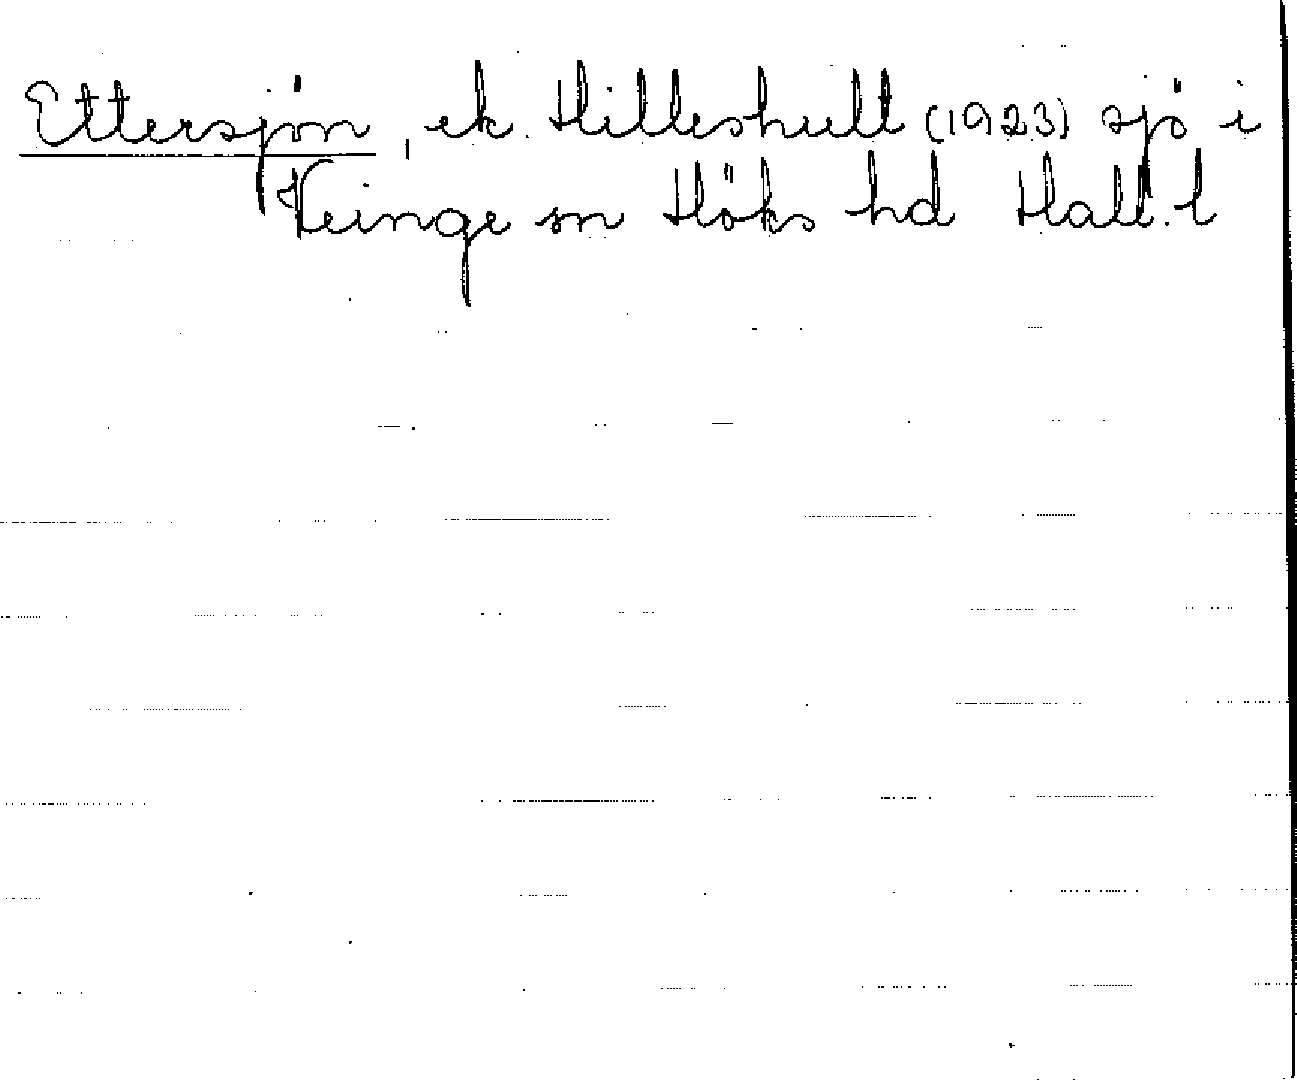 Ettersjön, ek. Hilleshult (1923) sjö i
Veinge sn Höks hd Hall. l